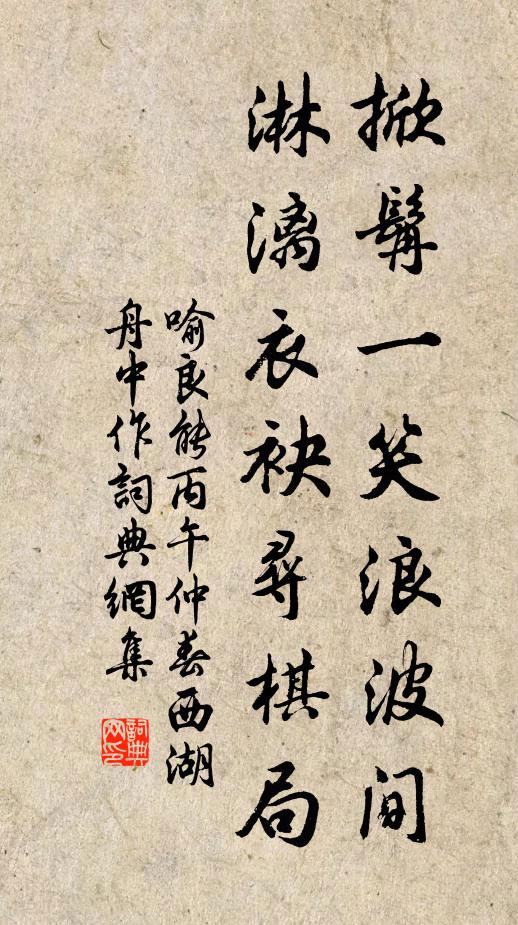 掀髯一笑浪波间
淋漓衣袂尋棋局
喻良能丙午仲春西湖
舟中作詞典網集
詞典網印